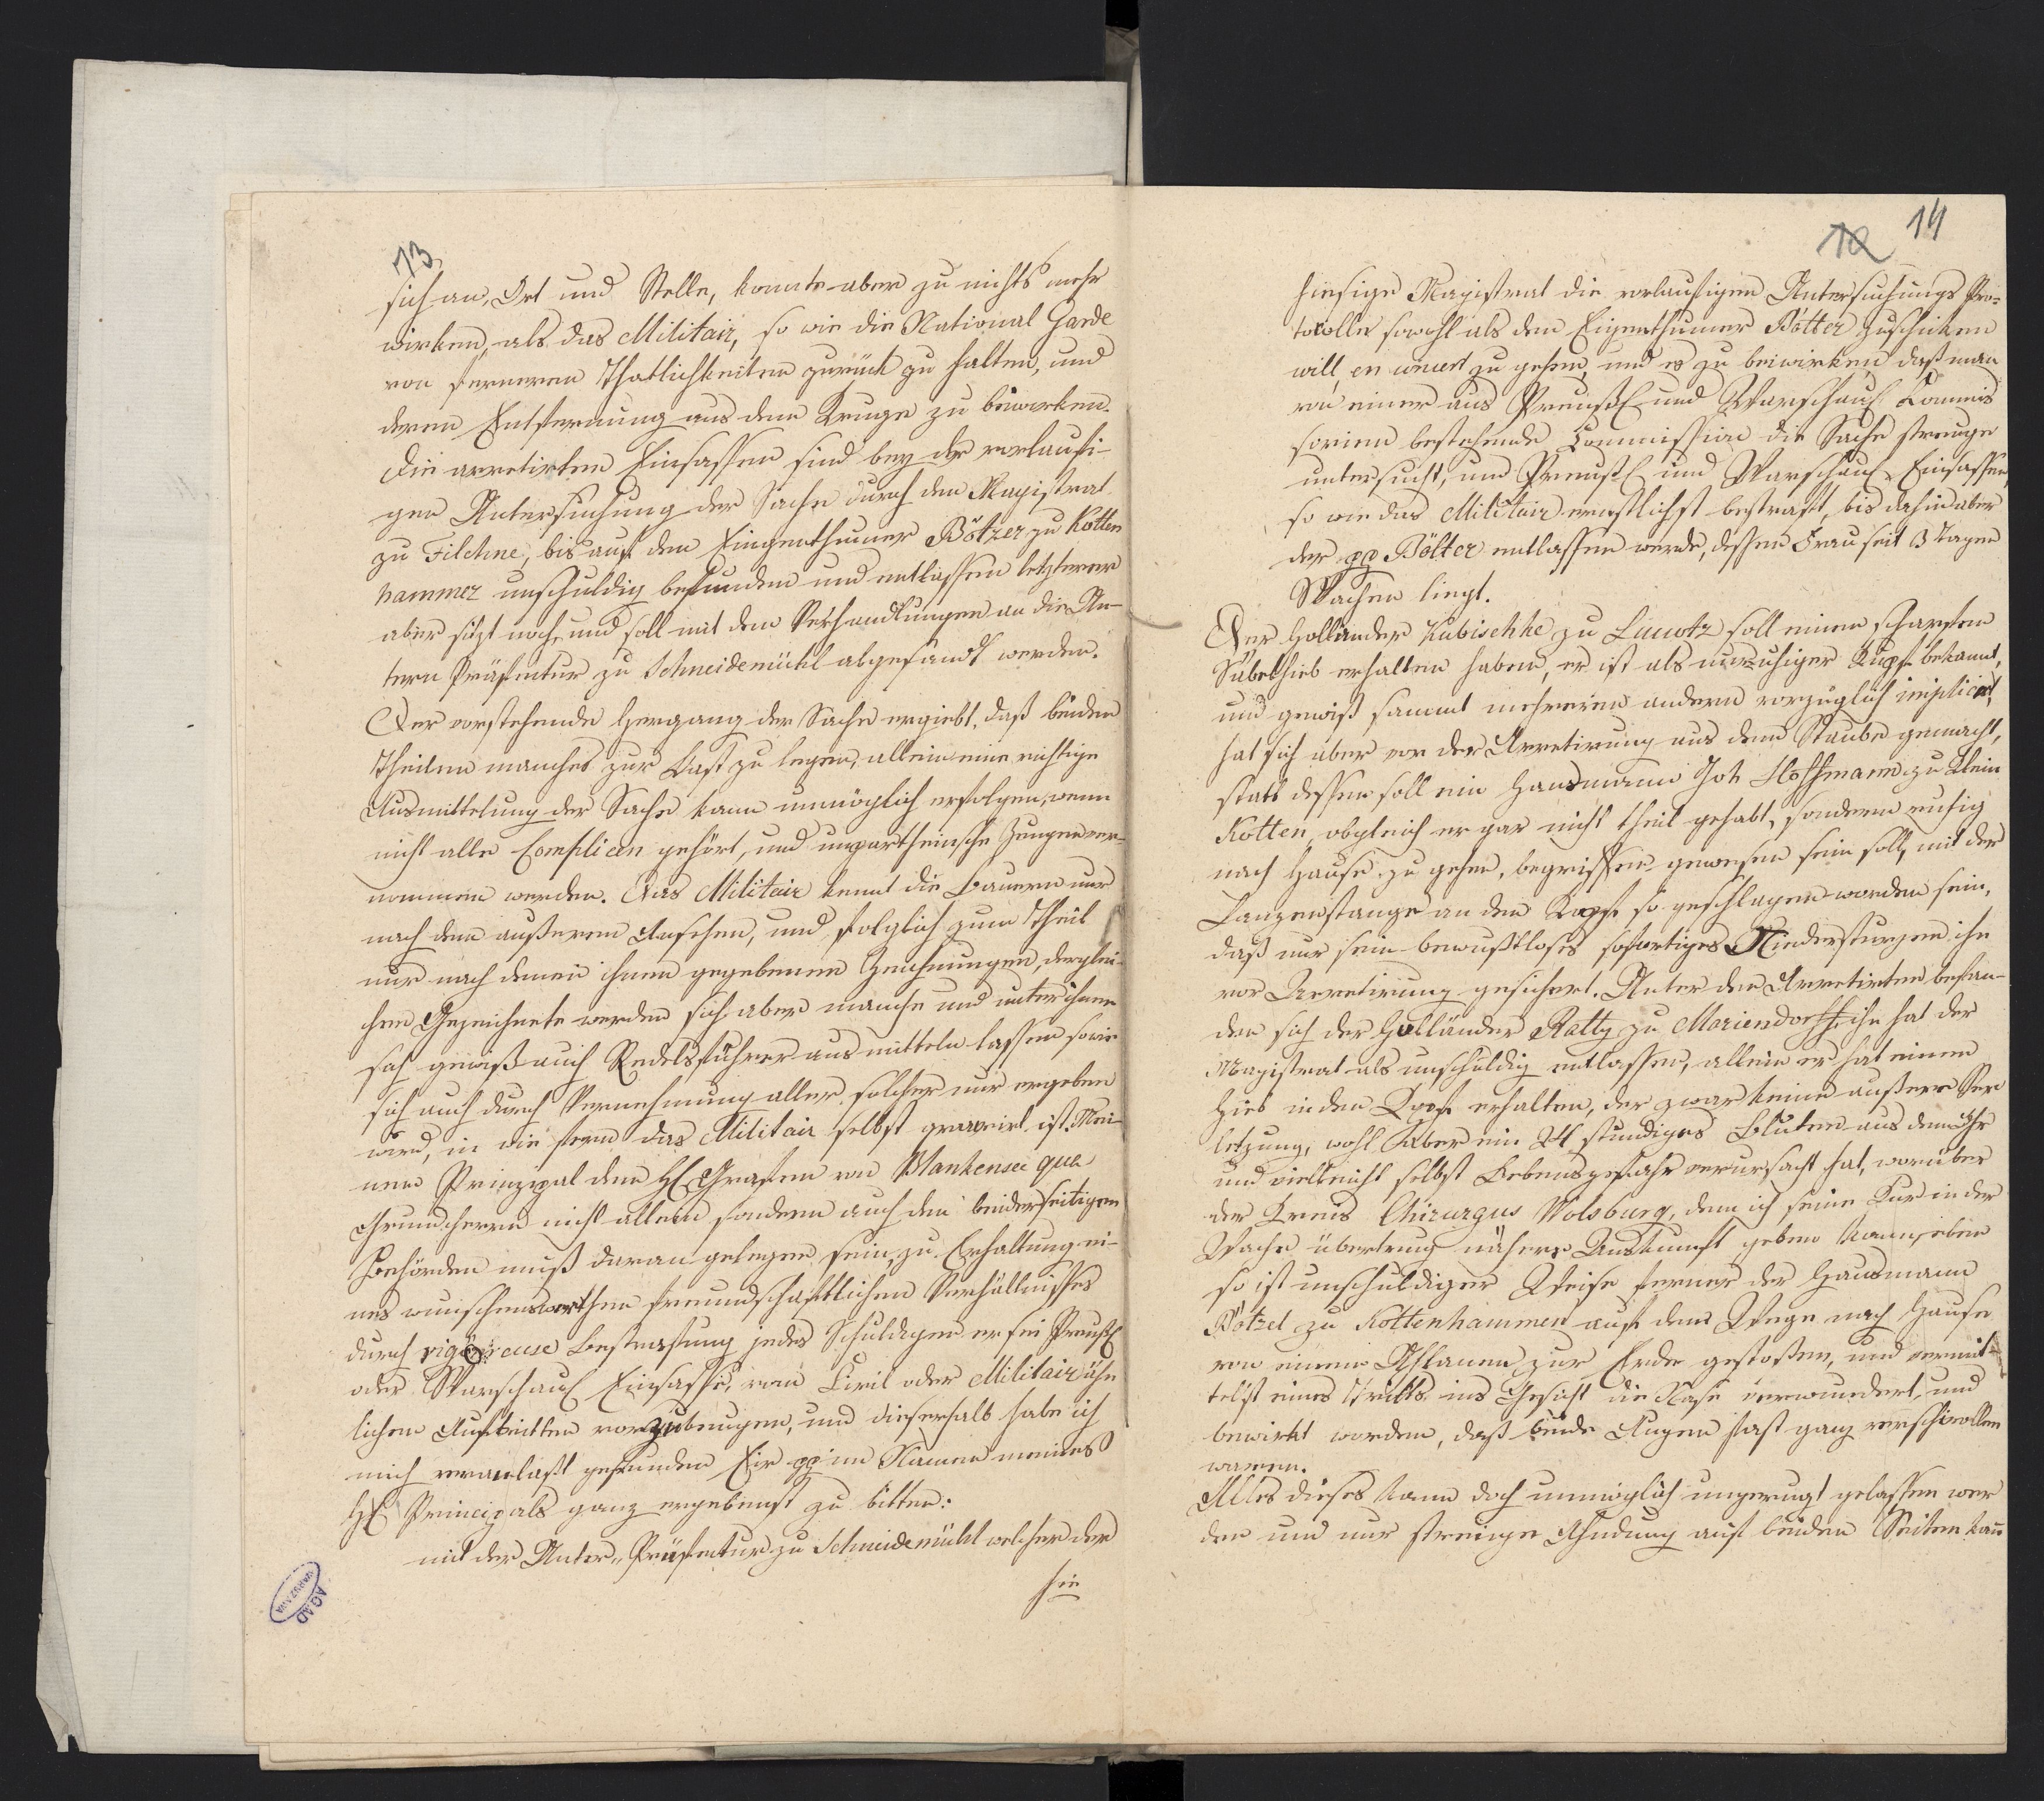 13
sich an, Ort und Stelle, konnte aber zu nichts mehr
wirken, als das Militair, so wie die National Garde
von ferneren Thatlichkeiten zurück zu halten, und
deren Entfernung aus dem Kruge zu bewirken.
Die arretirten Einsassen sind bey der vorlaufi-
gen Untersuchung der Sache durch den Magistrat
zu Filehne, bis auf den Eingenthumer Bötzer zu Kotten
hammer unschuldig befunden und entlassen letzterer
aber sitzt noch, und soll mit den Verhandlungen an die Un-
tern Präfectur zu Schneidemühl abgesandt werden.
Der vorstehende Hergang der Sache ergiebt, daß beiden
Theilen manches zur Last zu legen, allein eine richtige
Ausmittelung der Sache kann unmöglich erfolgen, wenn
nicht alle Complicen gehört, und unpartheiische Zeugen ver-
nommen werden. Das Militair kennt die Bauern nur
nach dem außeren Ansehen, und folglich zum Theil
nur nach denen ihnen gegebenen Zeichnungen, derglei-
chen Gezeichnete werden sich aber manche und unter ihnen
sich gewiß auch Redelsführer aus mitteln lassen so wie
sich auch durch Vernehmung aller solcher nur ergeben
wird, in wie fern das Militair selbst gravirt ist. Mei-
nem Prinzipal dem H Grafen von Blankensee qua
Grundherrn nicht allein sondern auch den beiderseitigen
Behörden muß daran gelegen sein, zu Erhaltung ei-
nes wunschenswerthen freundschaftlichen Verhältnisses
durch rigöreuse Bestrafung jedes Schuldigen er sei Preuß
oder Warschau Einsasse, vom Civil oder Militair ähn
lichen Auftritten vorzubeugen, und dieserhalb habe ich
mich veranlaßt gefunden Ew pp im Namen meines
H Principals ganz ergebenst zu bitten:
mit der Unter-Präfectur zu Schneidemühl welcher der
hie
AGAD
WARSZAWA
12 14
hiesige Magistrat die vorlaufigen Untersuchungs Pro-
tocolle sowohl als den Eigenthumer Bölter zuschicken
will, en concert zu gehen, und es zu beiwirken, daß man
von einer aus Preuß und Warschau Commis
sorien bestehende Commission die Sache strenge
untersucht, und Preuß und Warschau Einsassen,
so wie das Militair ernstlichst bestraft, bis dahin aber
der pp Bölter entlassen werde, dessen Frau seit 3 Tagen
Wachen liegt.
Der Hollander Kubischke zu Lucotz soll einen scharfen
Säbelhieb erhalten haben, er ist als unruhiger Kopf bekannt,
und gewiß sammt mehreren andern vorzüglich implicirt,
hat sich aber vor der Arretirung aus dem Staube gemacht,
statt dessen soll ein Hausmann Joh Hoffmann zu Klein
Kotten, obgleich er gar nicht theil gehabt, sondern ruhig
nach Hause zu gehen, begriffen gewesen sein soll, mit der
Lanzenstange an den Kopf so geschlagen worden sein,
daß nur sein bewußtloses sofortiges Niedersturzen ihn
vor Arretirung gesichert. Unter den Arretirten befan-
den sich der Holländer Ratty zu Mariendorff, ihn hat der
Magistrat als unschuldig entlassen, allein er hat einen
Hieb in den Kopf erhalten, der zwar keine außere Ver
letzung, wohl aber ein 24 stundiges Bluten aus dem Ohr
und vielleicht selbst Lebensgefahr verursacht hat, worüber
der Kreis Chirurgus Wolsburg, dem ich seine Kur in der
Wache übertrug nähere Auskunft geben kann, eben
so ist unschuldiger Weise ferner der Hausmann
Bötzel zu Kottenhammer auf dem Wege nach Hause
von einem Uhlanen zur Erde gestoßen, und vermit-
telst eines Tritts ins Gesicht die Nase verwundert, und
bewirkt worden, daß beide Augen fast ganz verschwollen
waren.
Alles dieses kann doch unmöglich ungerugt gelassen wer
den und nur strenge Ahndung auf beiden Seiten kan